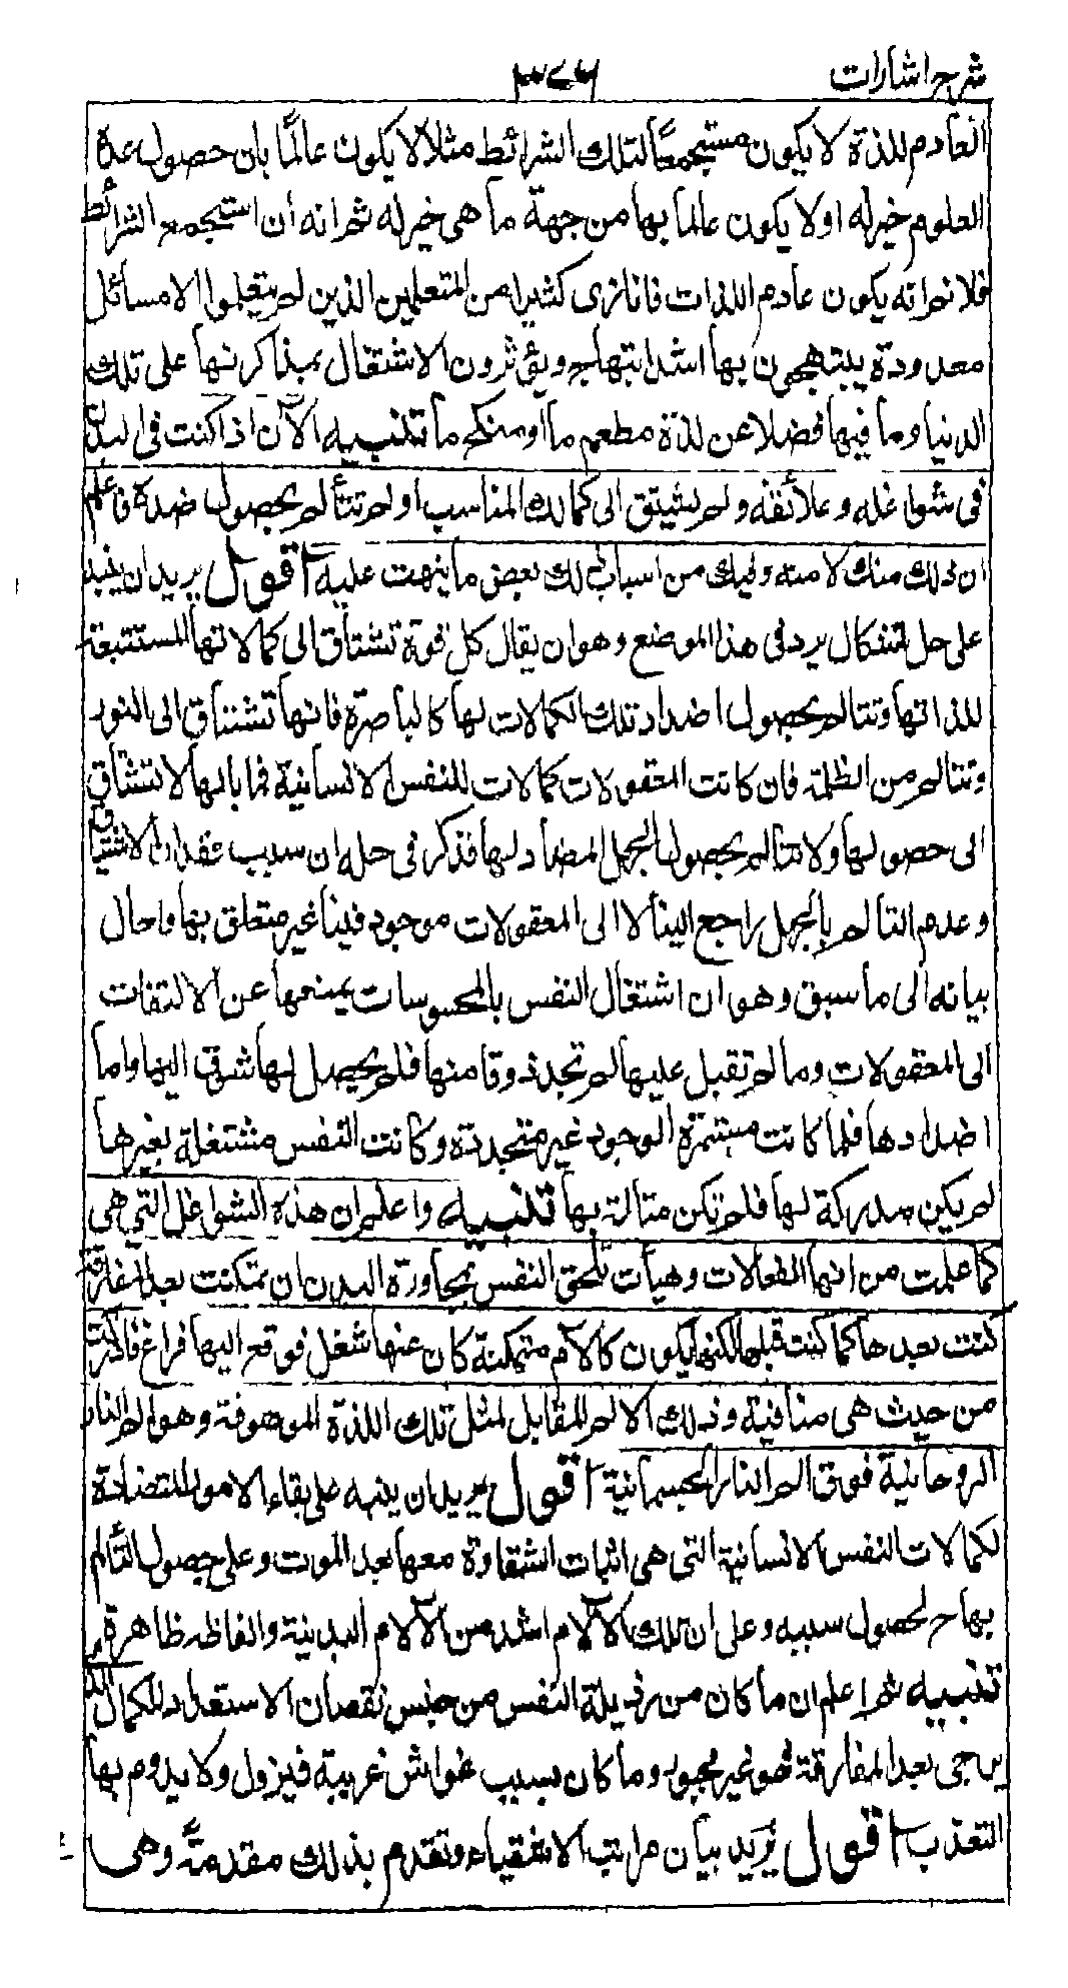 شرح اشارات
٣٧٦
العادم للذة لا يكون مستجمعًا لتلك الشرائط مثلا لا يكون عالمًا بان حصول هذه
العلوم خير له او لا يكون عالما بها من جهة ما هى خير له ثم انه ان استجمع الشرائط
فلا نم انه يكون عادم اللذات فانا نرى كثيرا من المتعلمين الذين لم يتعلموا الا مسائل
معدودة يبتهجون بها اشد ابتهاج ويؤثرون الاشتغال بمذاكرتها على تلك
الدنيا وما فيها فضلا عن لذة مطعم ما او منكح ما تنبيه الآن اذا كنت فى البدن
فى شواغله وعلائقه ولم تشتق الى كمالك المناسب او لم تتألم بحصول ضده فاعلم
ان ذلك منك لا منه وفيك من اسباب ذلك بعض ما نبهت عليه اقول يريد ان ينبه
على حل اشكال يرد فى هذا الموضع وهو ان يقال كل قوة تشتاق الى كمالاتها المستتبعة
للذاتها وتتالم بحصول اضداد تلك الكمالات لها كالباصرة فانها تشتاق الى النور
وتتالم من الظلمة فان كانت المعقولات كمالات للنفس الانسانية فما بالها لا تشتاق
الى حصولها ولا تتالم بحصول الجهل المضاد لها فذكر فى حله ان سبب فقدان الاشتياق
وعدم التألم بالجهل راجع الينا لا الى المعقولات موجود فينا غير متعلق بها واحال
بيانه الى ما سبق وهو ان اشتغال النفس بالمحسوسات يمنعها عن الالتفات
الى المعقولات وما لم تقبل عليها لم تجد ذوقا منها فلم يحصل لها شوق اليها واما
اضدادها فلما كانت مستمرة الوجود غير متجددة وكانت النفس مشتغلة بغيرها
لم يكن مدركة لها فلم تكن متالمة بها تنبيه واعلم ان هذه الشواغل التى هى
كما علمت من انها انفعالات وهيأت تلحق النفس بمجاورة البدن ان تمكنت بعد المفارقة
كنت بعدها كما كنت قبلها لكنها يكون كآلام متمكنة كان عنها شغل فوقع اليها فراغ فادركت
من حيث هى منافية وذلك الالم المقابل لمثل تلك اللذة الموصوفة وهو الم النار
الروحانية فوق الم النار الجسمانية اقول يريد ان ينبه على بقاء الامور المتضادة
لكمالات النفس الانسانية التى هى اثبات الشقاوة معها بعد الموت وعلى حصول التألم
بها ح لحصول سببه وعلى ان تلك الآلام اشد من الآلام البدنية والفاظه ظاهرة
تنبيه ثم اعلم ان ما كان من رذيلة النفس من جنس نقصان الاستعداد للكمال الذى
يرجى بعد المفارقة فهو غير مجبور وما كان بسبب غواش غريبة فيزول ولا يدوم بها
التعذب اقول يريد بيان مراتب الاشقياء وتقدم بذلك مقدمة وهى